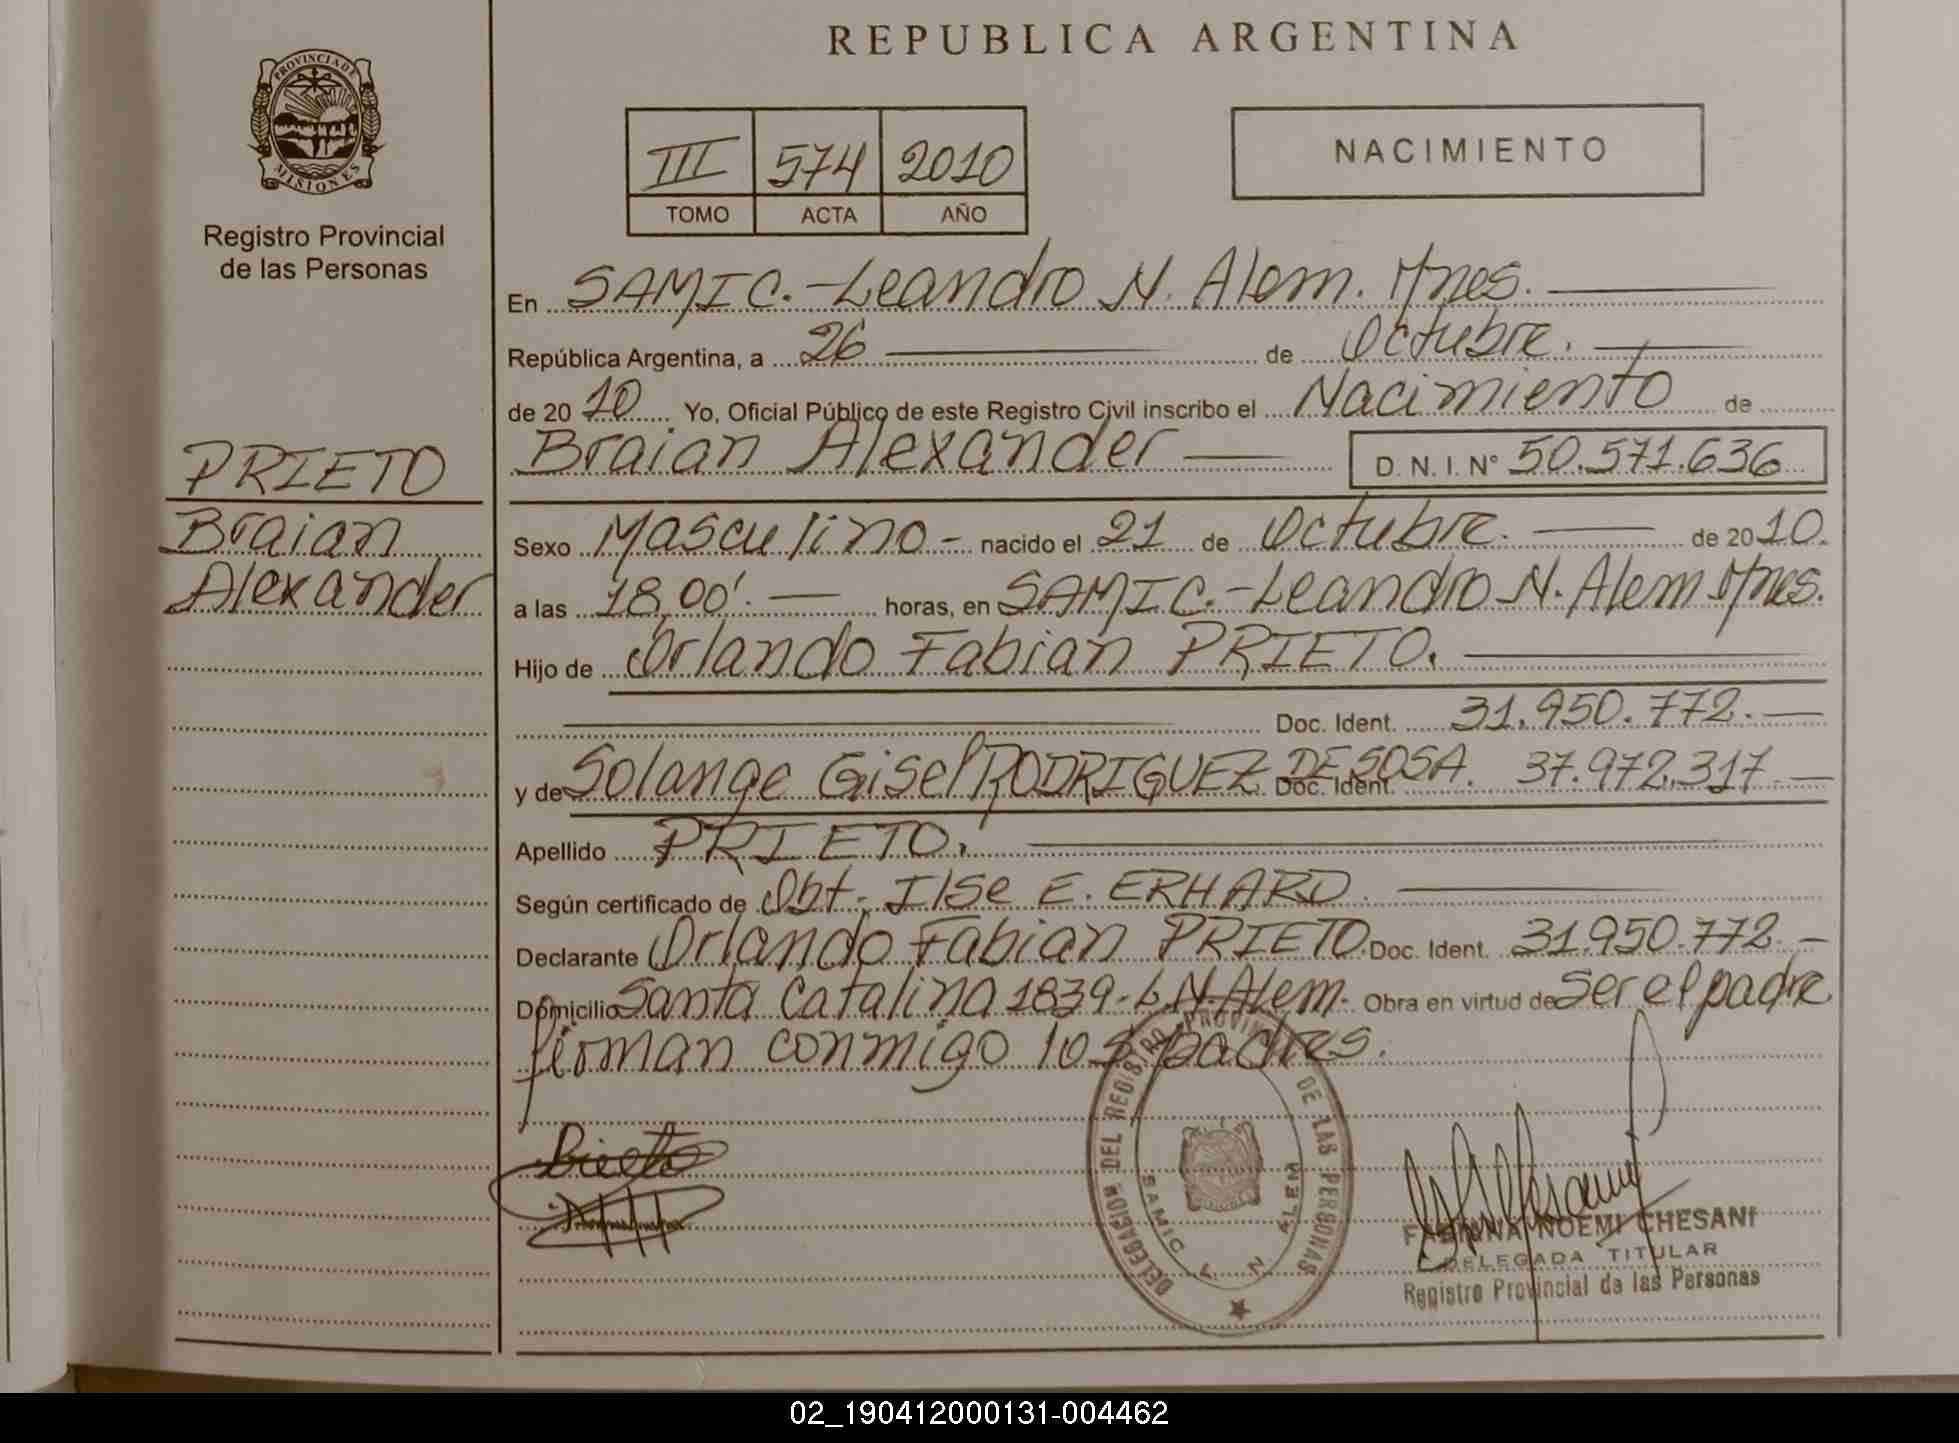 REPUBLICA ARGENTINA
PROVINCIA DE
MISIONES
Registro Provincial
de las Personas
III 574 2010
TOMO ACTA AÑO
NACIMIENTO
En SAMIC.-Leandro N. Alem. Mnes.
República Argentina, a 26 de Octubre.
de 20 10 Yo, Oficial Público de este Registro Civil inscribo el Nacimiento de
Braian Alexander D. N. I. N° 50.571.636
PRIETO
Braian
Alexander
Sexo Masculino - nacido el 21 de Octubre. de 20 10.
a las 18,00'. horas, en SAMIC.-Leandro N. Alem Mnes.
Hijo de Orlando Fabian PRIETO.
Doc. Ident. 31.950.772.
y de Solange Gisel RODRIGUEZ DE SOSA. Doc. Ident. 37.972.317.
Apellido PRIETO.
Según certificado de Obt. Ilse E. ERHARD
Declarante Orlando Fabian PRIETO. Doc. Ident. 31.950.772.-
Domicilio Santa Catalina 1839-L.N.Alem. Obra en virtud de ser el padre
firman conmigo los padres.
DELEGACION DEL REGISTRO PROVINCIAL DE LAS PERSONAS
SAMIC L. N. ALEM
FABIANA NOEMI CHESANI
DELEGADA TITULAR
Registro Provincial de las Personas
02_190412000131-004462